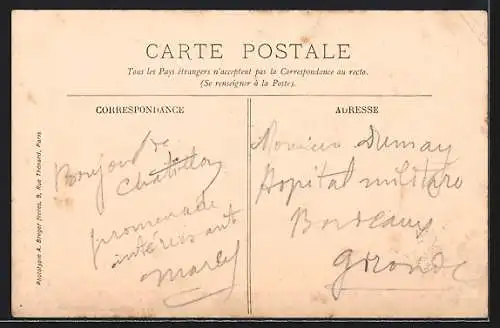 CARTE POSTALE
Tous les Pays étrangers n'acceptent pas la Correspondance au recto.
(Se renseigner à la Poste).
CORRESPONDANCE
Bonjour de
Chatillon
promenade
intéressante
Marcel
ADRESSE
Monsieur Dumay
Hopital militaire
Bordeaux
Gironde
Phototypie A. Breger frères, 9, Rue Thénard, Paris